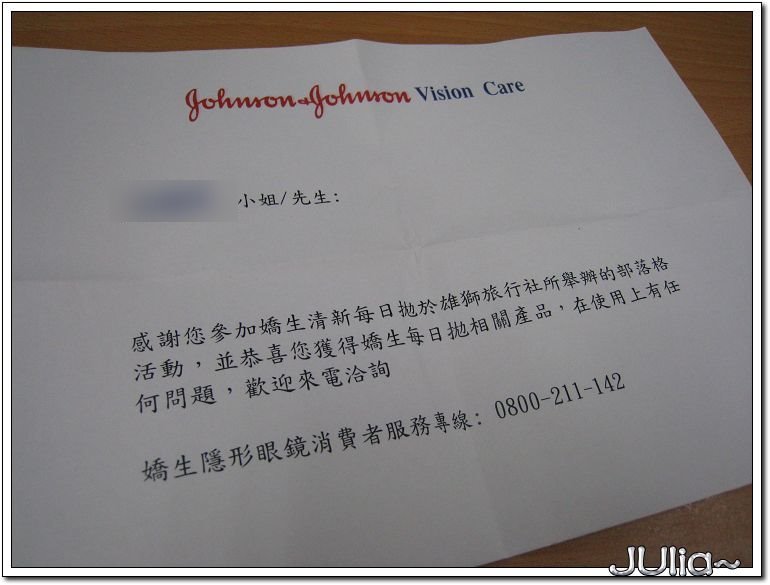 Johnson & Johnson Vision Care
小姐/先生:
感謝您參加嬌生清新每日拋於雄獅旅行社所舉辦的部落格
活動，並恭喜您獲得嬌生每日拋相關產品，在使用上有任
何問題，歡迎來電洽詢
嬌生隱形眼鏡消費者服務專線: 0800-211-142
JUlia~